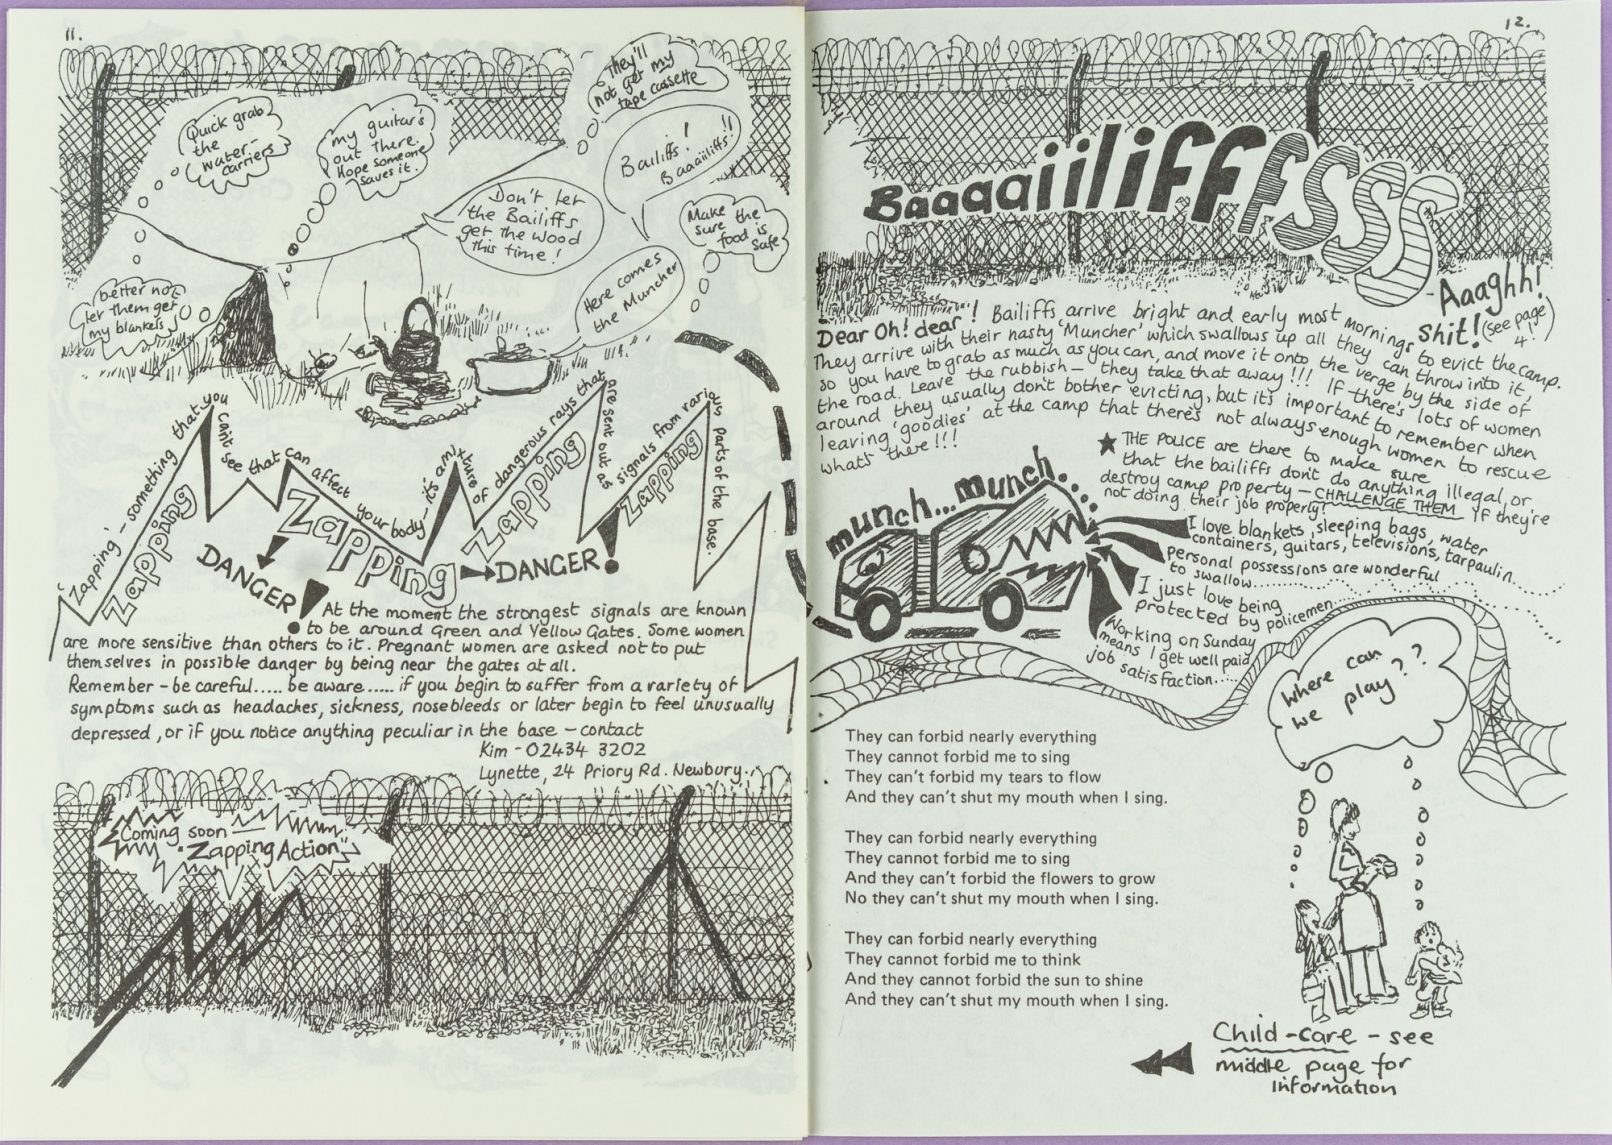 11.
Quick grab
the
water-
carriers
my guitar's
out there.
Hope someone
saves it.
They'll
not get my
tape cassette
Bailiffs! !!
Baaaiiliffs!
Don't let
the Bailiffs
get the wood
this time!
Make the
sure
food is
safe
Here comes
the Muncher
better not
let them get
my blankets
'Zapping' - something that you can't see that can affect your body - it's a mixture of dangerous rays that are sent out as signals from various parts of the base.
Zapping
Zapping
Zapping
Zapping
DANGER!
DANGER!
At the moment the strongest signals are known
to be around Green and Yellow Gates. Some women
are more sensitive than others to it. Pregnant women are asked not to put
themselves in possible danger by being near the gates at all.
Remember - be careful..... be aware..... if you begin to suffer from a variety of
symptoms such as headaches, sickness, nosebleeds or later begin to feel unusually
depressed, or if you notice anything peculiar in the base - contact
Kim - 02434 3202
Lynette, 24 Priory Rd. Newbury.
Coming soon —
"Zapping Action"
12.
Baaaaiiiliffffssss
- Aaaghh!
Shit! (see page 4.)
Dear Oh! dear! Bailiffs arrive bright and early most mornings to evict the camp.
They arrive with their nasty 'Muncher' which swallows up all they can throw into it,
so you have to grab as much as you can, and move it onto the verge by the side of
the road. Leave the rubbish - they take that away!!! If there's lots of women
around they usually don't bother evicting, but it's important to remember when
leaving 'goodies' at the camp that there's not always enough women to rescue
what's there!!!
★ THE POLICE are there to make sure
that the bailiffs don't do anything illegal, or
destroy camp property - CHALLENGE THEM if they're
not doing their job properly!
munch... munch...
I love blankets, sleeping bags, water
containers, guitars, televisions, tarpaulin...
personal possessions are wonderful
to swallow...
I just love being
protected by policemen...
Working on Sunday
means I get well paid
job satisfaction....
Where can
we play??
They can forbid nearly everything
They cannot forbid me to sing
They can't forbid my tears to flow
And they can't shut my mouth when I sing.
They can forbid nearly everything
They cannot forbid me to sing
And they can't forbid the flowers to grow
No they can't shut my mouth when I sing.
They can forbid nearly everything
They cannot forbid me to think
And they cannot forbid the sun to shine
And they can't shut my mouth when I sing.
Child-care - see
middle page for
information